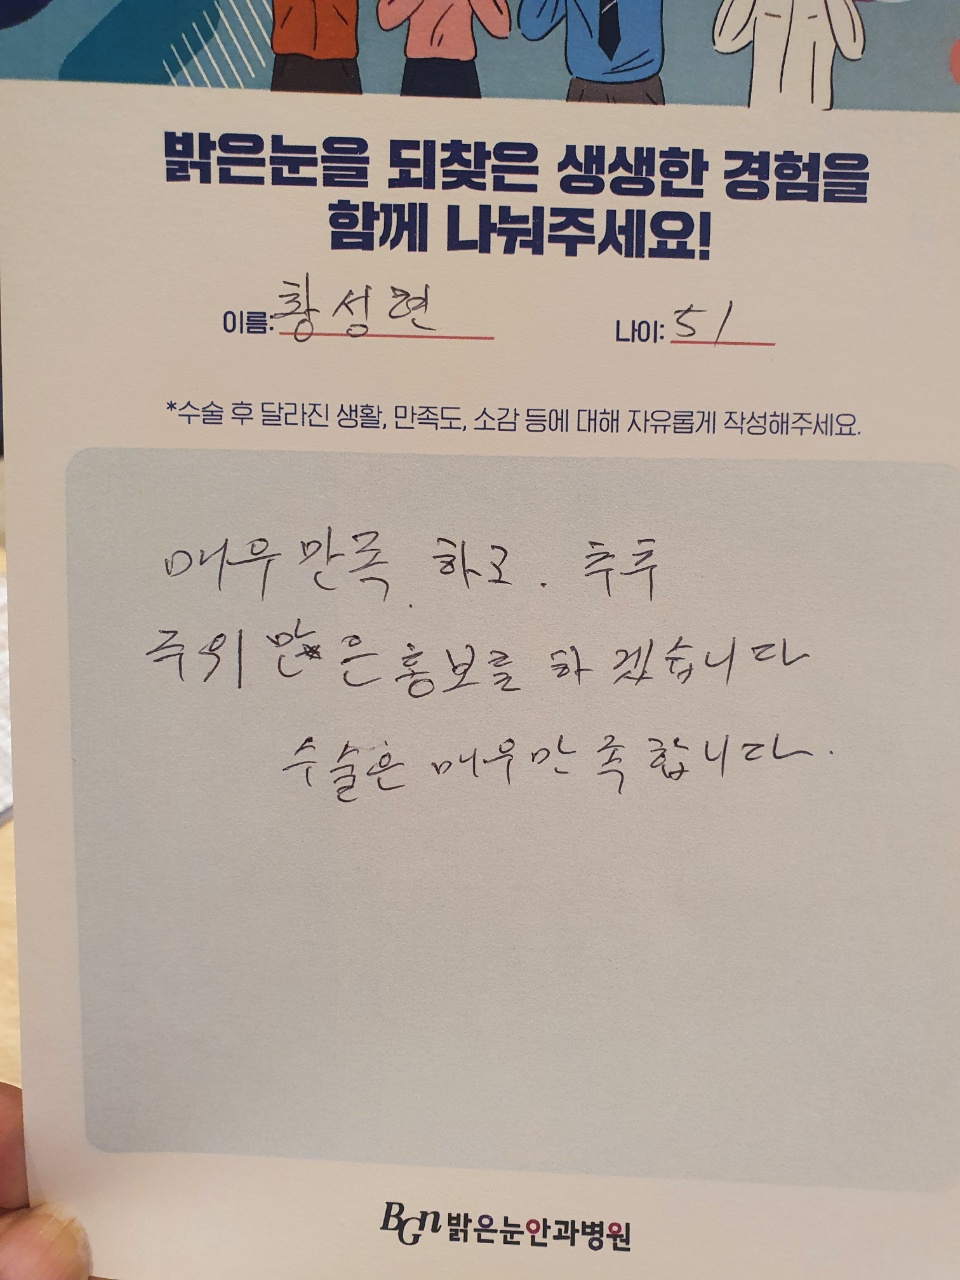 밝은눈을 되찾은 생생한 경험을
함께 나눠주세요!
이름: 황성현 나이: 51
*수술 후 달라진 생활, 만족도, 소감 등에 대해 자유롭게 작성해주세요.
매우 만족 하고. 추후
주위 많은 홍보를 하겠습니다
수술은 매우만족합니다.
BGN 밝은눈안과병원